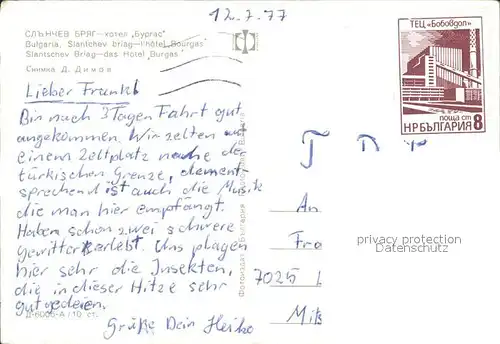 12.7.77
СЛЪНЧЕВ БРЯГ—хотел „Бургас"
Bulgaria, Slantchev briag—l'hôtel „Bourgas"
Slantschev Briag—das Hotel „Burgas"
Снимка Д. Димов
ТЕЦ „Бобовдол"
поща ст
НРБЪЛГАРИЯ 8
Lieber Frank!
Bin nach 3 Tagen Fahrt gut
angekommen. Wir zelten auf
einem Zeltplatz nahe der
türkischen Grenze, dement-
sprechend ist auch die Musik
die man hier empfängt.
Haben schon zwei schwere
Gewitter erlebt. Uns plagen
hier sehr die Insekten,
die in dieser Hitze sehr
gut gedeien.
Grüße Dein Heiko
Д-6006-А / 10 ст.
Фотоиздат България
An
Fra
7025 L
Mits
privacy protection
Datenschutz